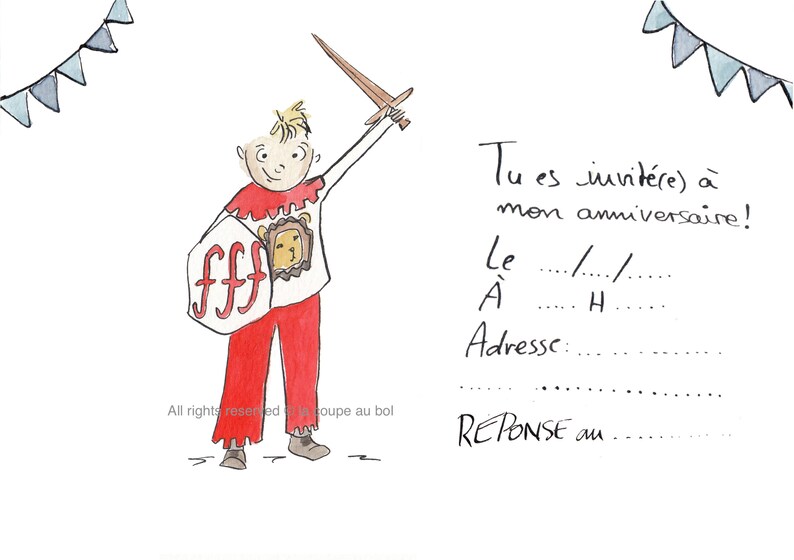 fff
All rights reserved © la coupe au bol
Tu es invité(e) à
mon anniversaire!
Le ..../..../.....
À ..... H ......
Adresse: ... .. ........
...... .............
RÉPONSE au ............